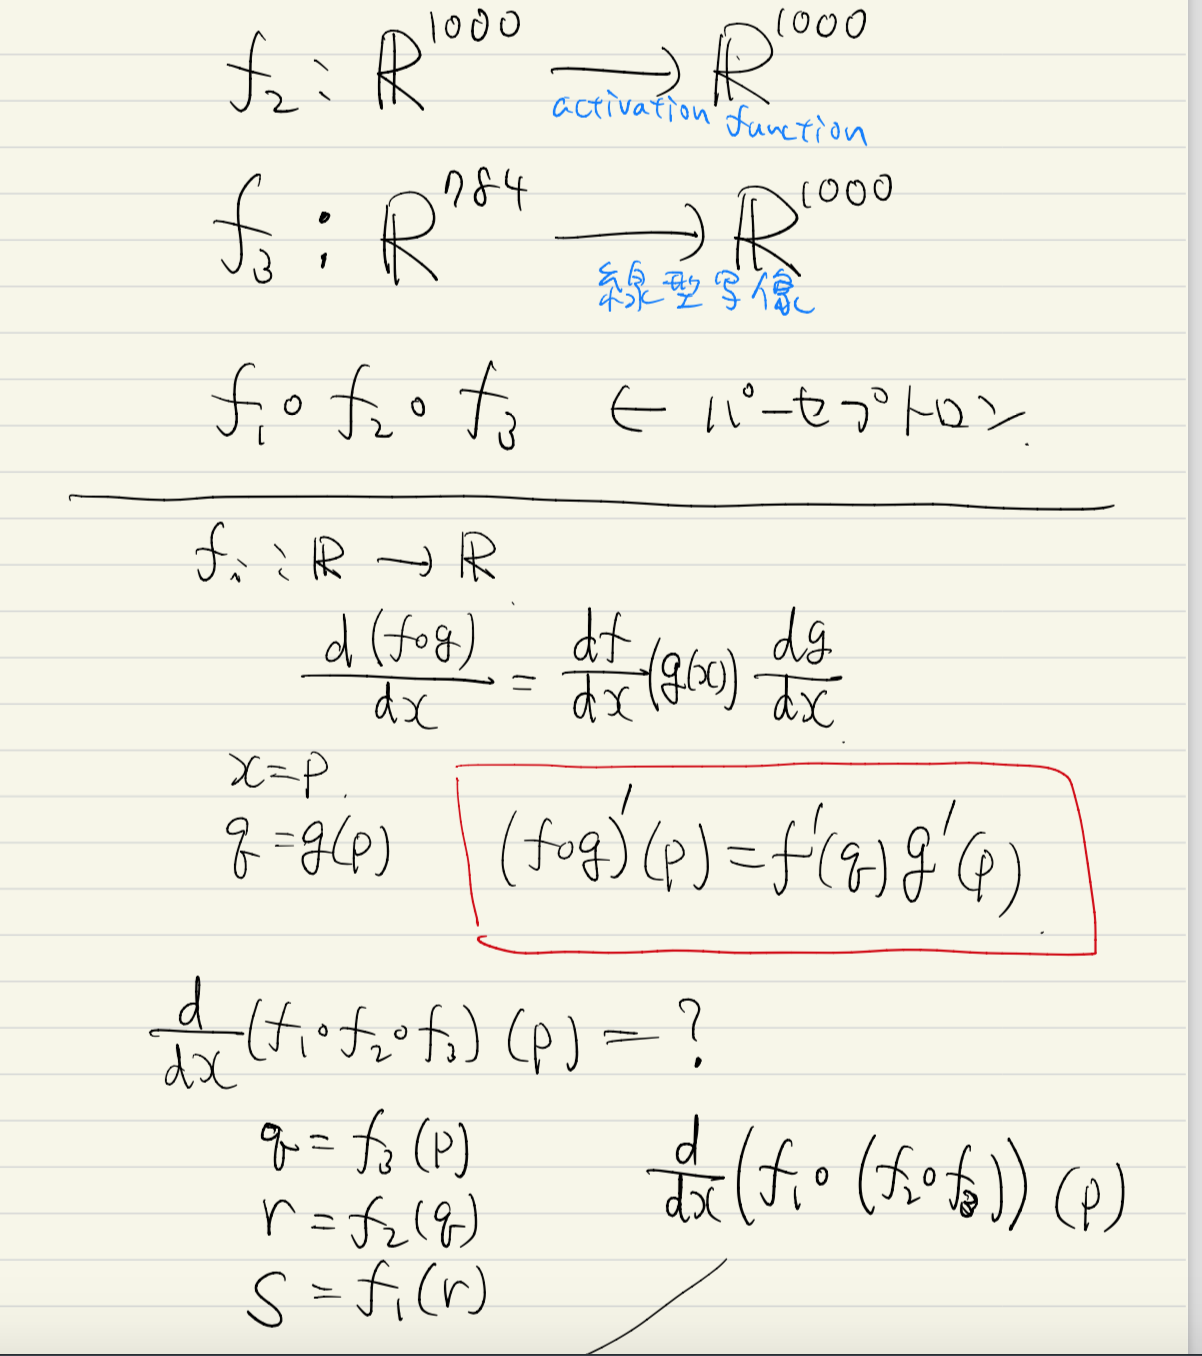 f₂ : ℝ¹⁰⁰⁰ → ℝ¹⁰⁰⁰
activation function
f₃ : ℝ⁷⁸⁴ → ℝ¹⁰⁰⁰
線型写像
f₁∘f₂∘f₃ ← パーセプトロン
fᵢ : ℝ → ℝ
d(f∘g)/dx = df/dx (g(x)) dg/dx
x=p
q=g(p)
(f∘g)'(p)=f'(q)g'(p)
d/dx (f₁∘f₂∘f₃)(p) = ?
q = f₃(p)
r = f₂(q)
s = f₁(r)
d/dx (f₁∘(f₂∘f₃))(p)